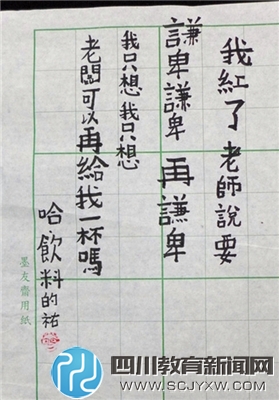 我紅了老師說要
謙卑謙卑再謙卑
我只想我只想
老闆可以再給我一杯嗎
哈飲料的祐
墨友齋用紙
四川教育新闻网
WWW.SCJYXW.COM